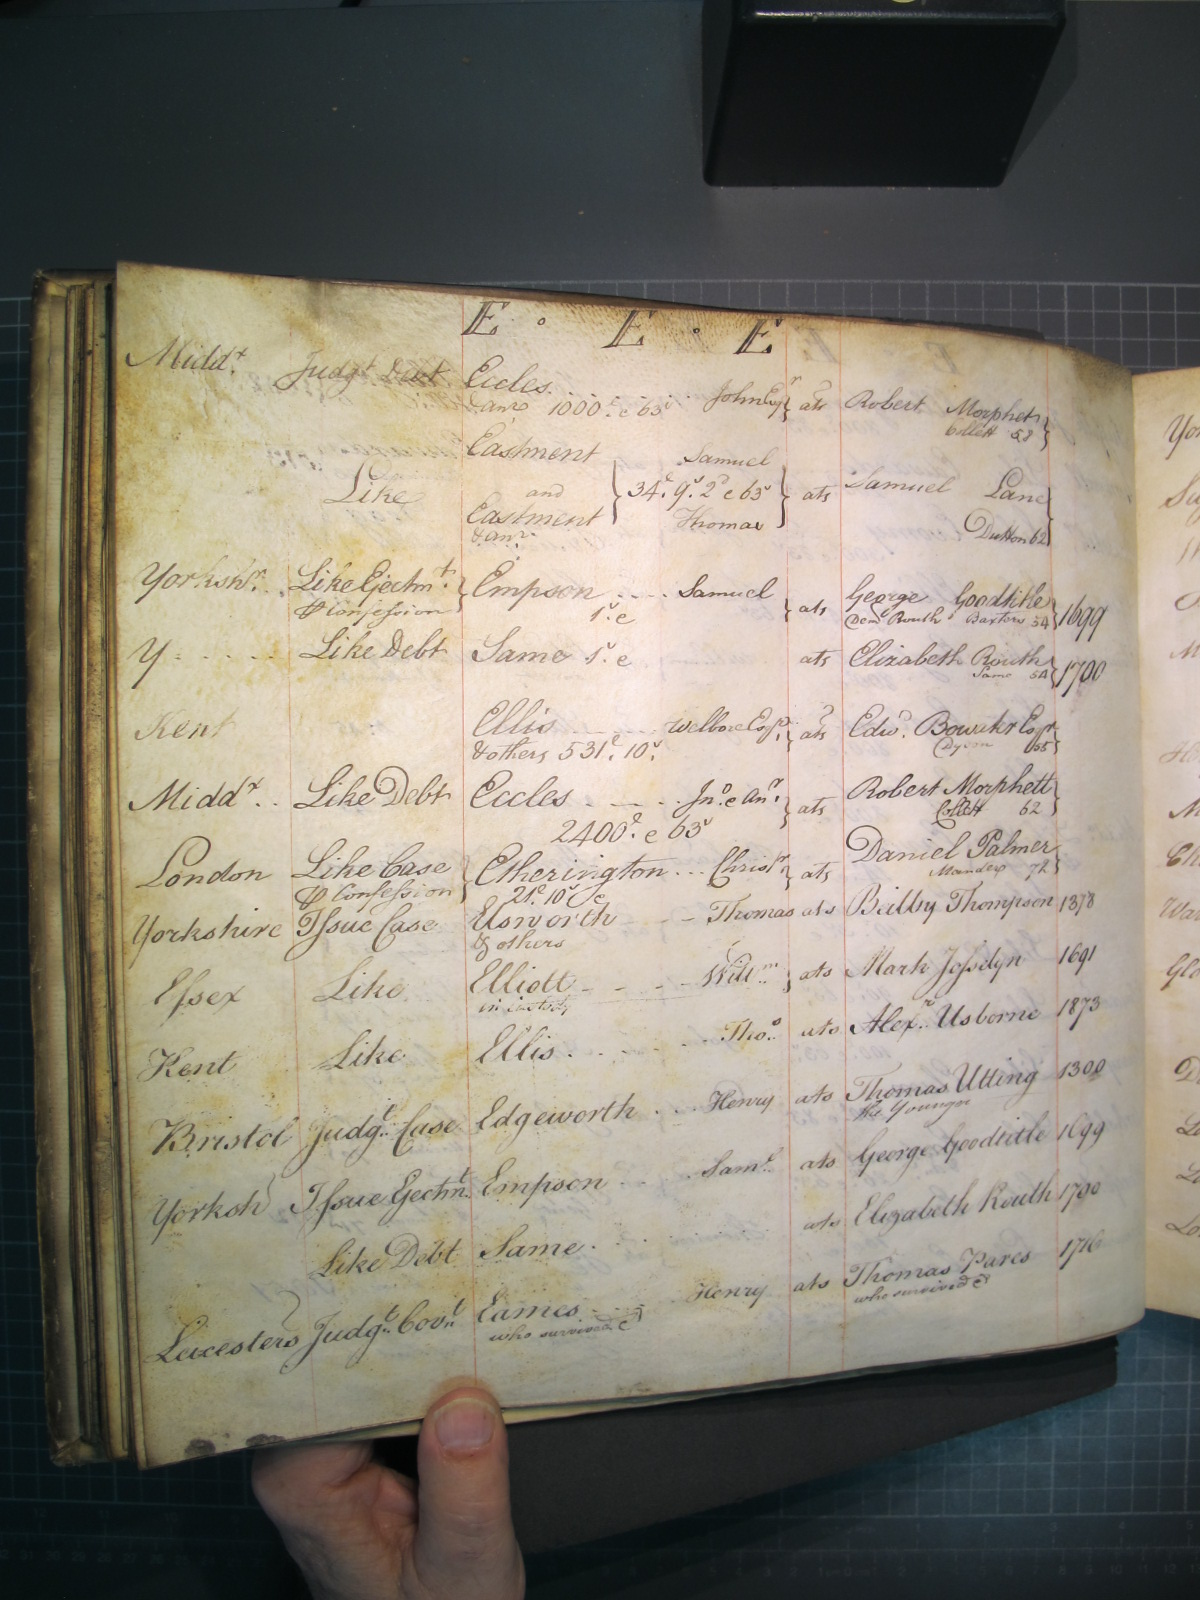 E . E . E
Midd.x Judg.t Debt Eccles John Esq.r } ats Robert Morphet }
& an.r 1000.£ e 63.s Collett 58
Eastment Samuel
Like and } 34.£ 9.s 2.d e 63.s } ats Samuel Lane }
Eastment Thomas Dutton 62
& an.r
Yorksh.r Like Ejectm.t } Empson .... Samuel } ats George Goodtitle } 1699
℗ Confession 1.s e Dem.e Routh Baxters 54
Y . . . . Like Debt Same 1.s e ats Elizabeth Routh } 1700
Same 54
Kent Ellis Welbore Esq.r } ats Edw.d Bowaker Esq.r }
& others 531.£ 10.s Dyson 65
Midd.x . . Like Debt Eccles . . . . Jn.o e an.r } ats Robert Morphett }
2400.£ e 63.s Collett 62
London Like Case } Etherington ... Christ.r } ats Daniel Palmer }
℗ Confession 21.£ 10.s e Mandex 72
Yorkshire Issue Case Usworth Thomas ats Beilby Thompson 1378
& others
Essex Like Elliott . . . . Will.m } ats Mark Josselyn 1691
in custody
Kent Like Ellis . . . . Tho.s ats Alex.r Usborne 1873
Bristol Judg.t Case Edgeworth . . . Henry ats Thomas Utting 1300
the Younger
Yorksh Issue Ejectm.t Empson . . . . Sam.l ats George Goodtitle 1699
Like Debt Same . . . ats Elizabeth Routh 1700
Leicesters Judg.t Cov.t Eames . . . . Henry ats Thomas Pares 1716
who survived &c who survived &c